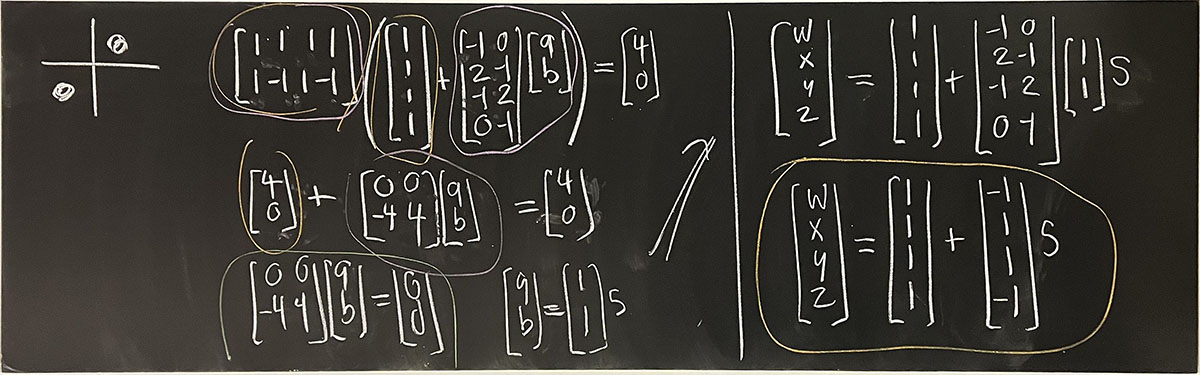 [1 1 1 1; 1 -1 1 -1] ([1; 1; 1; 1] + [-1 0; 2 -1; -1 2; 0 -1] [a; b]) = [4; 0]
[4; 0] + [0 0; -4 4] [a; b] = [4; 0]
[0 0; -4 4] [a; b] = [0; 0]
[a; b] = [1; 1] s
[w; x; y; z] = [1; 1; 1; 1] + [-1 0; 2 -1; -1 2; 0 -1] [1; 1] s
[w; x; y; z] = [1; 1; 1; 1] + [-1; 1; 1; -1] s